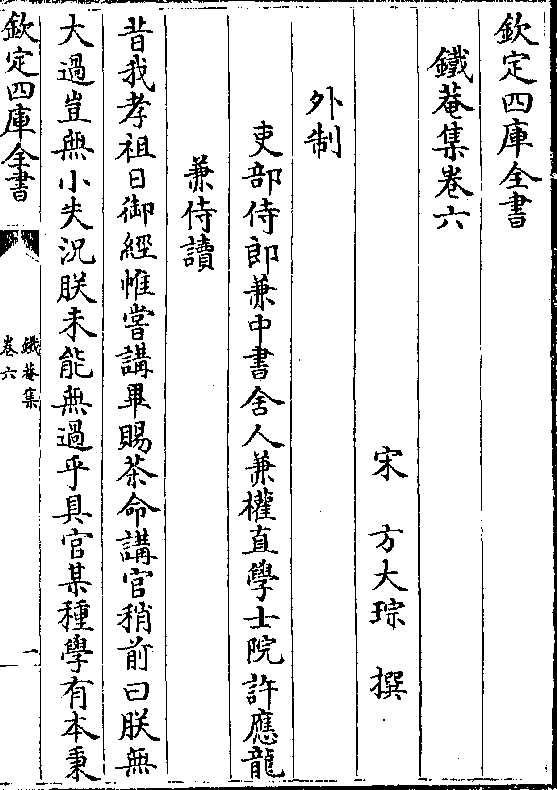 欽定四庫全書
鐵菴集卷六
宋 方大琮 撰
外制
吏部侍郎兼中書舍人兼權直學士院許應龍
兼侍讀
昔我孝祖日御經帷嘗講畢賜茶命講官稍前曰朕無
大過豈無小失況朕未能無過乎具官某種學有本秉
欽定四庫全書
鐵菴集
卷六
一